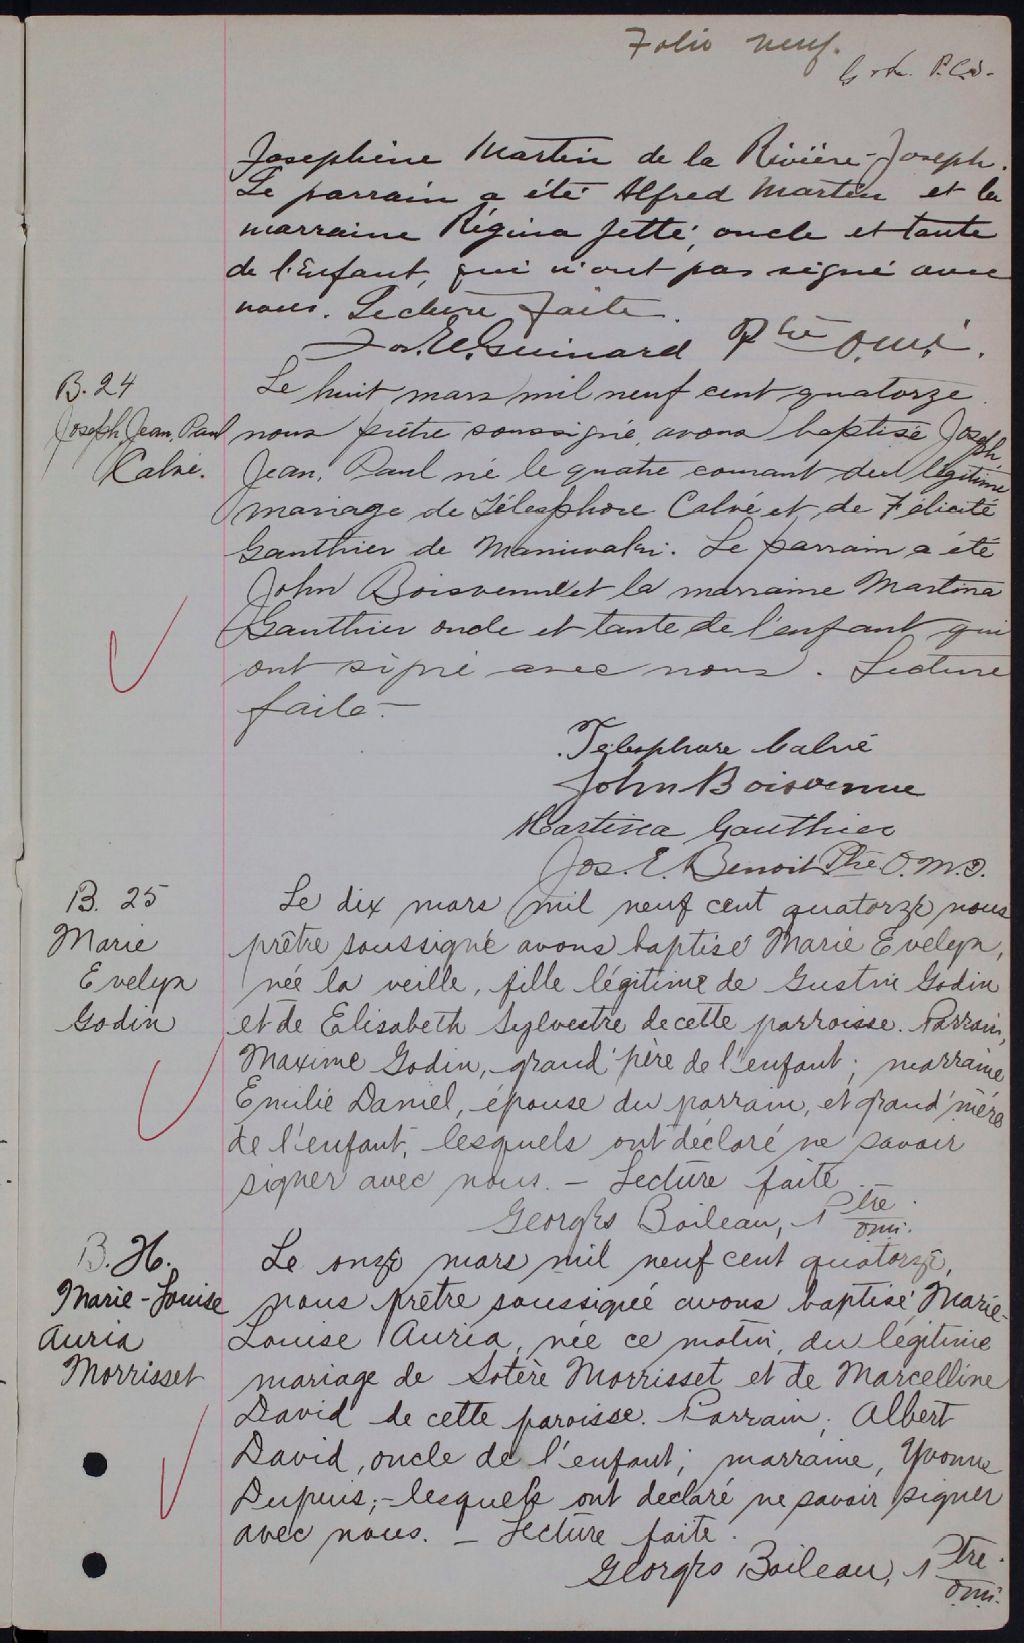 Folio neuf.
P.C.S.
Josephine Martin de la Rivière-Joseph.
Le parrain a été Alfred Martin et la
marraine Régina Jetté, oncle et tante
de l'Enfant, qui n'ont pas signé avec
nous. Lecture faite.
Jos. E. Guinard Ptre O.M.I.
B. 24
Joseph, Jean, Paul
Calvé.
Le huit mars mil neuf cent quatorze
nous prêtre soussigné, avons baptisé Joseph
Jean, Paul né le quatre courant du légitime
mariage de Télesphore Calvé et de Félicité
Gauthier de Maniwaki. Le parrain a été
John Boisvenue et la marraine Martina
Gauthier oncle et tante de l'enfant qui
ont signé avec nous. Lecture
faite.-
Télesphore Calvé
John Boisvenue
Martina Gauthier
Jos. E. Benoit Ptre O.M.I.
B. 25
Marie
Evelyn
Godin
Le dix mars mil neuf cent quatorze nous
prêtre soussigné avons baptisé Marie Evelyn,
née la veille, fille légitime de Godin
et de Elisabeth Sylvestre de cette parroisse. Parrain,
Maxime Godin, grand'père de l'enfant; marraine
Emilie Daniel, épouse du parrain, et grand'mère
de l'enfant, lesquels ont déclaré ne savoir
signer avec nous. - Lecture faite.
Georges Boileau, Ptre
omi.
B. 26.
Marie-Louise
Auria
Morrisset
Le onze mars mil neuf cent quatorze,
nous prêtre soussigné avons baptisé, Marie-
Louise Auria, née ce matin, du légitime
mariage de Sotère Morrisset et de Marcelline
David de cette paroisse. Parrain, Albert
David, oncle de l'enfant; marraine, Yvonne
Dupuis;-lesquels ont declaré ne savoir signer
avec nous. - Lecture faite.
Georges Boileau, Ptre.
omi.